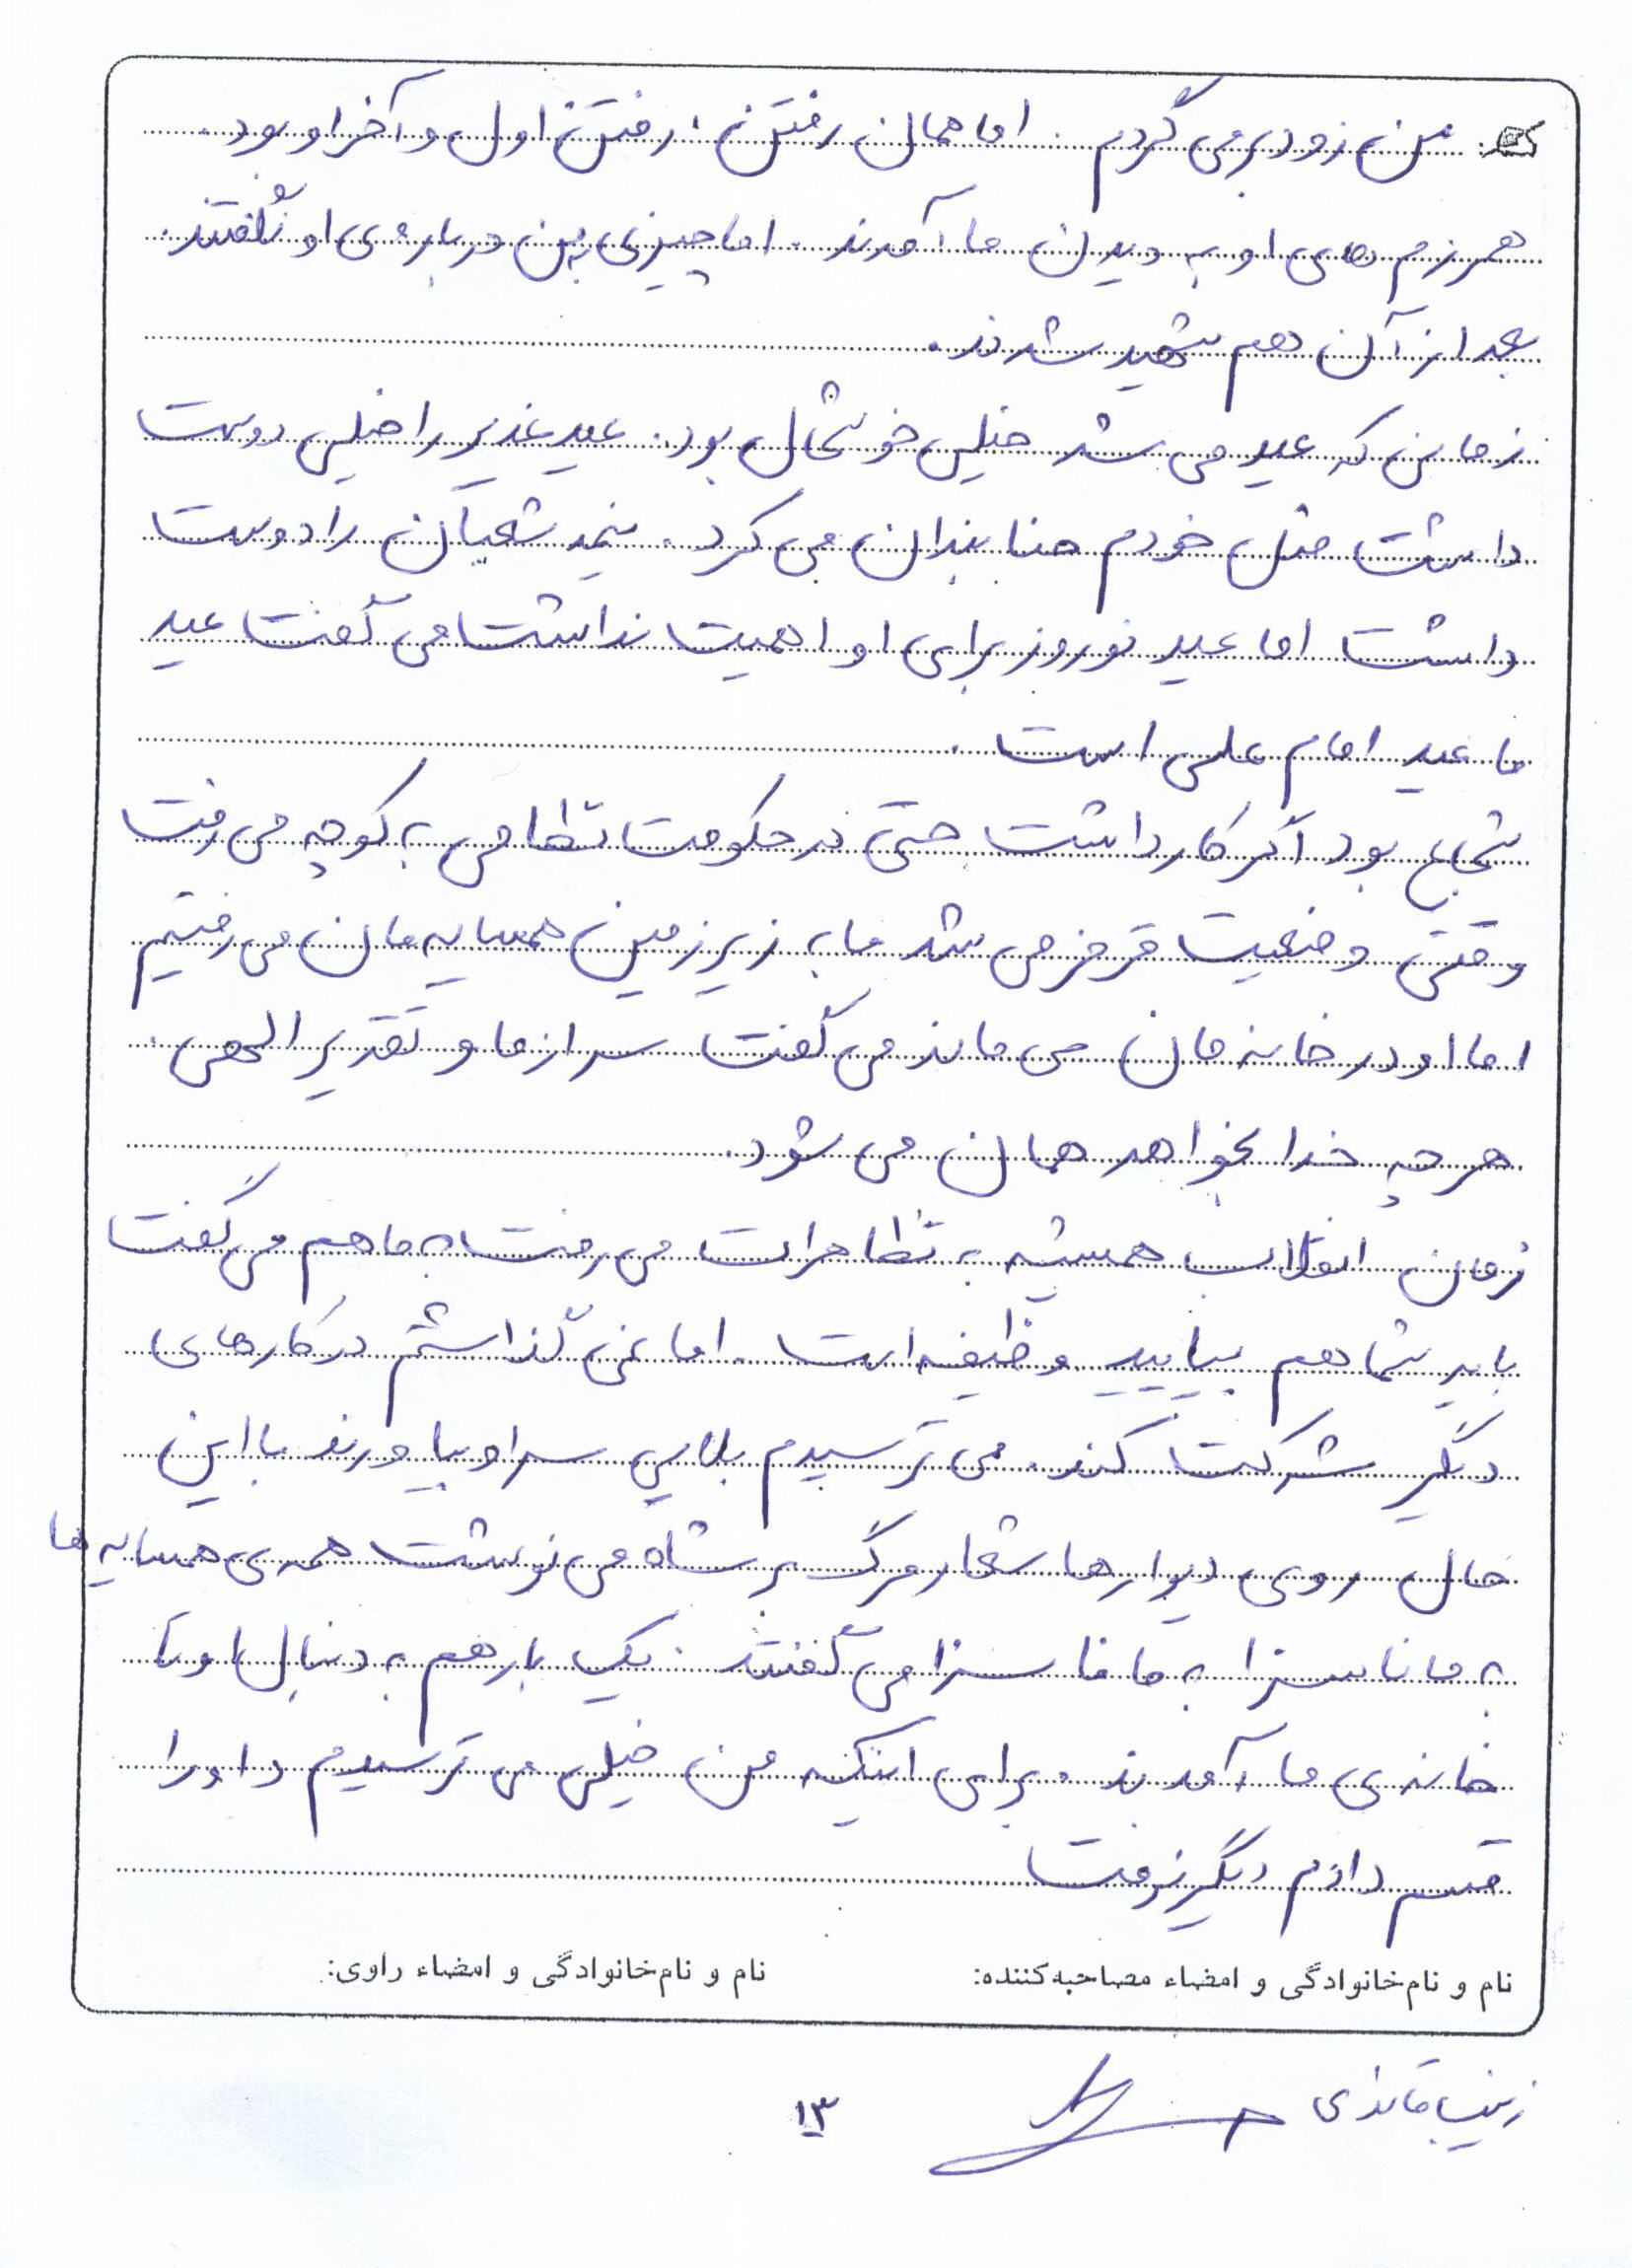 من زود برمی گردم. اما همان رفتن، رفتن اول و آخر او بود.
همرزم های او به دیدن ما آمدند. اما چیزی به من درباره ی او نگفتند.
بعد از آن هم شهید شدند.
زمانی که عید می شد خیلی خوشحال بود. عید غدیر را خیلی دوست
داشت مثل خودم حنابندان می کرد. نیمه شعبان را دوست
داشت اما عید نوروز برای او اهمیت نداشت می گفت عید
ما عید امام علی است.
شجاع بود اگر کار داشت حتی در حکومت نظامی به کوچه می رفت
وقتی وضعیت قرمز می شد ما به زیرزمین همسایه مان می رفتیم
اما او در خانه مان می ماند می گفت سر از ما و تقدیر الهی.
هر چه خدا بخواهد همان می شود.
زمان انقلاب همیشه به تظاهرات می رفت به ما هم می گفت
باید شما هم بیایید وظیفه است. اما نمی گذاشتم در کارهای
دیگر شرکت کند. می ترسیدم بلایی سر او بیاورند با این
حال روی دیوارها شعار مرگ بر شاه می نوشت همه ی همسایه ها
به ما ناسزا به ما ناسزا می گفتند. یک بار هم به دنبال او تا
خانه ی ما آمدند. برای اینکه من خیلی می ترسیدم و او را
قسم دادم دیگر نرفت
نام و نام‌خانوادگی و امضاء مصاحبه‌کننده: نام و نام‌خانوادگی و امضاء راوی:
زینب قائدی
۱۳